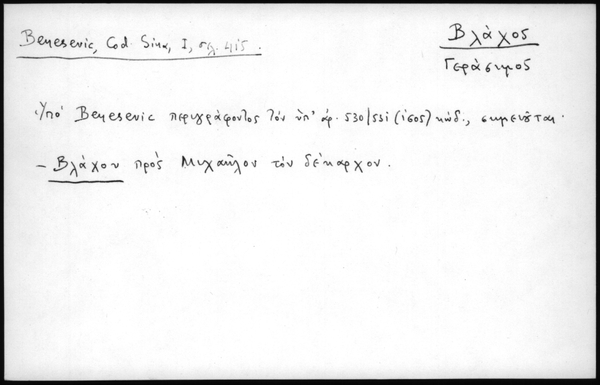 Benesevic, Cod. Sina, I, σελ. 415.
Βλάχος
Γεράσιμος
Ὑπὸ Benesevic περιγράφοντος τὸν ὑπ' ἀρ. 530/531 (1505) κώδ., σημειοῦται·
– Βλάχου πρὸς Μιχαῆλον τὸν δέκαρχον.